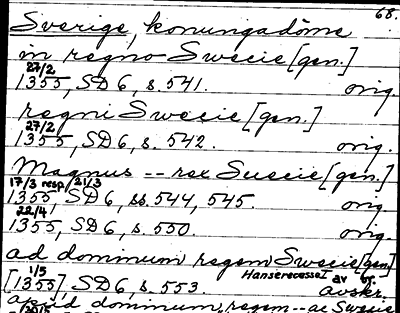 68.
Sverige, konungadöme
in regno Swecie [gen.]
27/2
1355, SD 6, s. 541. orig.
regni Swecie [gen.]
27/2
1355, SD 6, s. 542. orig.
Magnus -- rex Suecie [gen.]
17/3 resp. 21/3
1355, SD 6, ss. 544, 545. orig.
22/4
1355, SD 6, s. 550. orig.
ad dominum regem Swecie [gen.]
1/5 Hanserecesse I av
[1355] SD 6, s. 553. avskr.
dominum, regem -- ac Swecie